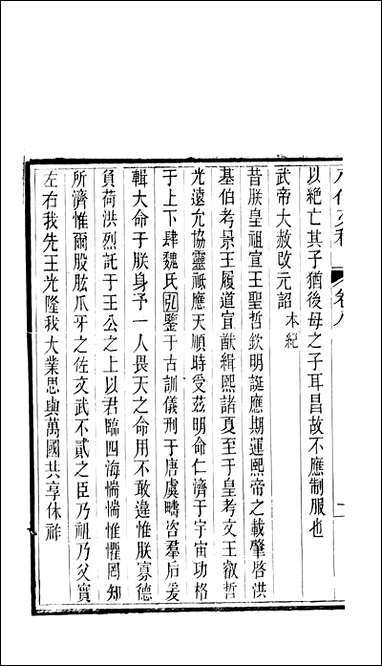 八代文粹 卷八 二
以絶亡其子猶後母之子耳昌故不應制服也
武帝大赦改元詔 本紀
昔朕皇祖宣王聖哲欽明誕應期運熙帝之載肇啓洪
基伯考景王履道宣猷緝熙諸夏至于皇考文王叡哲
光遠允協靈祇應天順時受茲明命仁濟于宇宙功格
于上下肆魏氏弘鑒于古訓儀刑于唐虞疇咨羣后爰
輯大命于朕身予一人畏天之命用不敢違惟朕寡德
負荷洪烈託于王公之上以君臨四海惴惴惟懼罔知
所濟惟爾股肱爪牙之佐文武不貳之臣乃祖乃父實
左右我先王光隆我大業思與萬國共享休祥